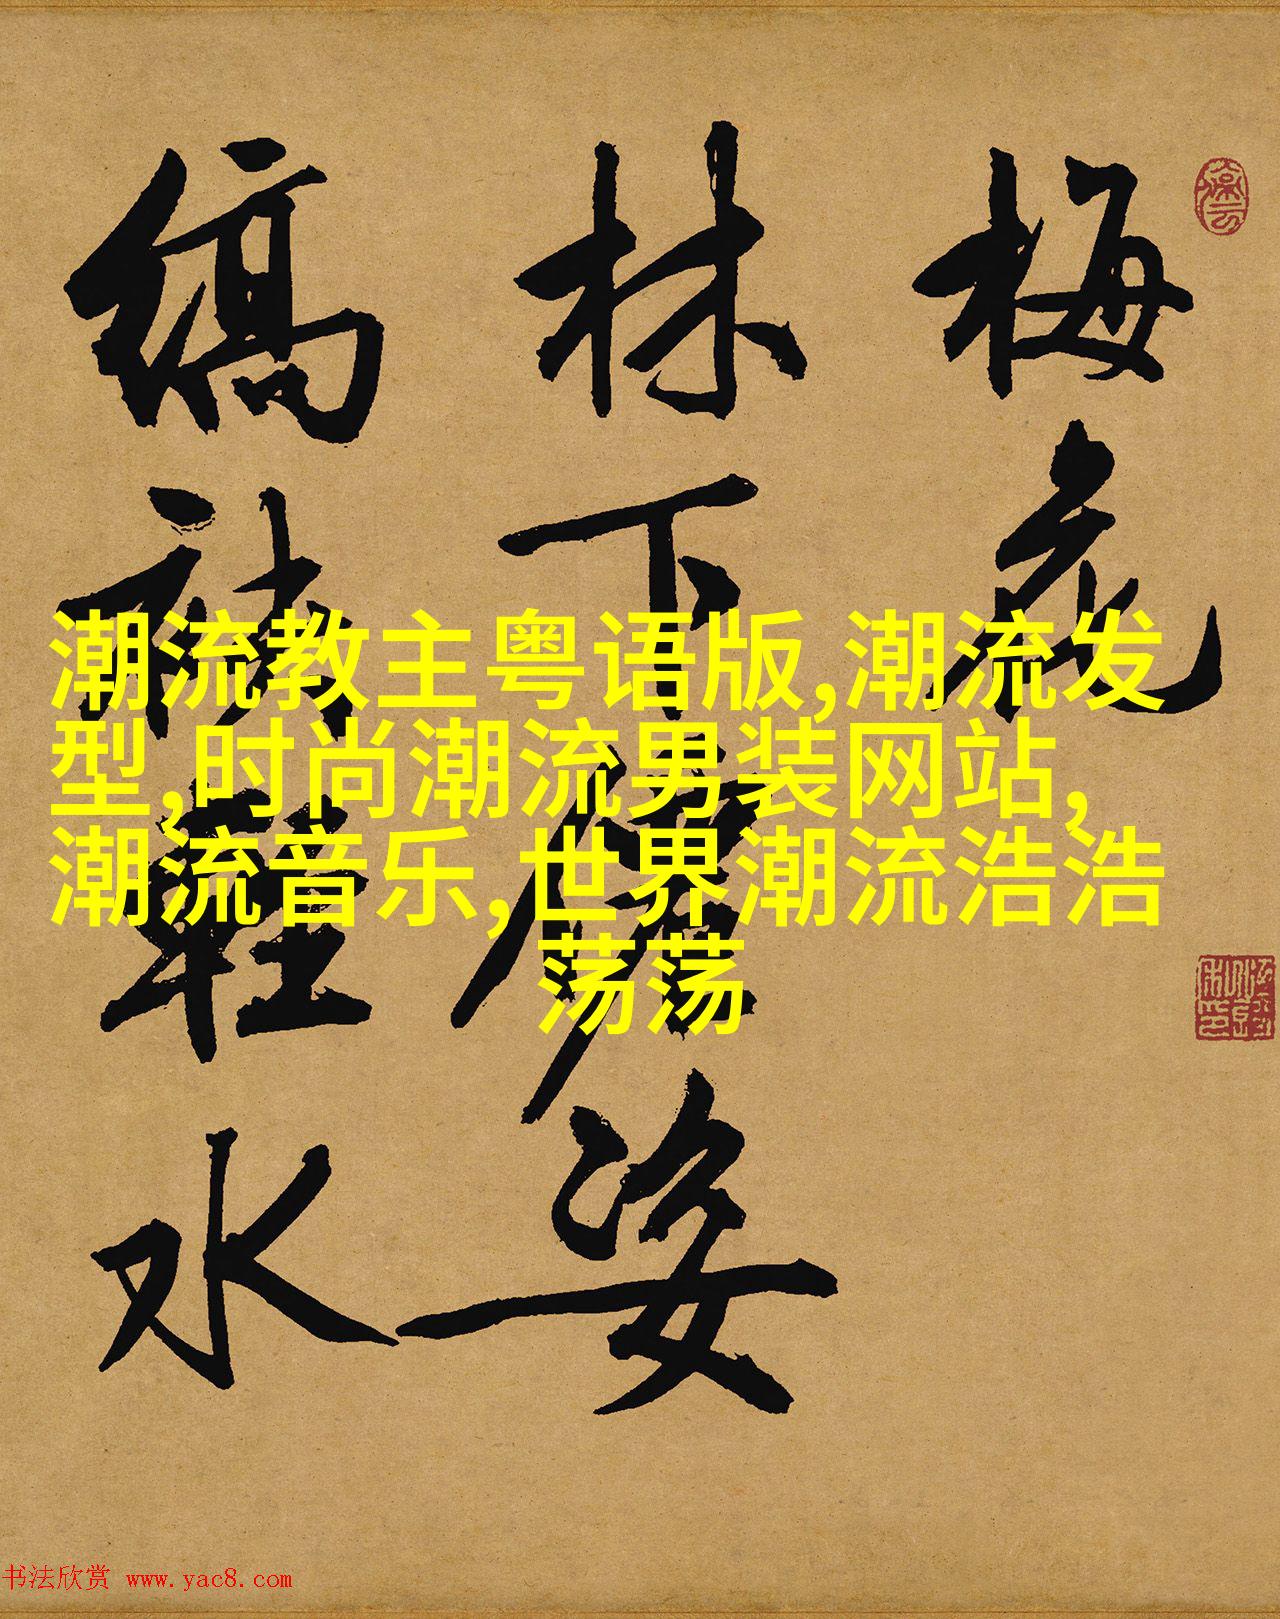 梅花
林下姿
縞袂輕水
潮流教主粤语版,潮流发
型,时尚潮流男装网站,
潮流音乐,世界潮流浩浩
荡荡
书法欣赏 www.yac8.com